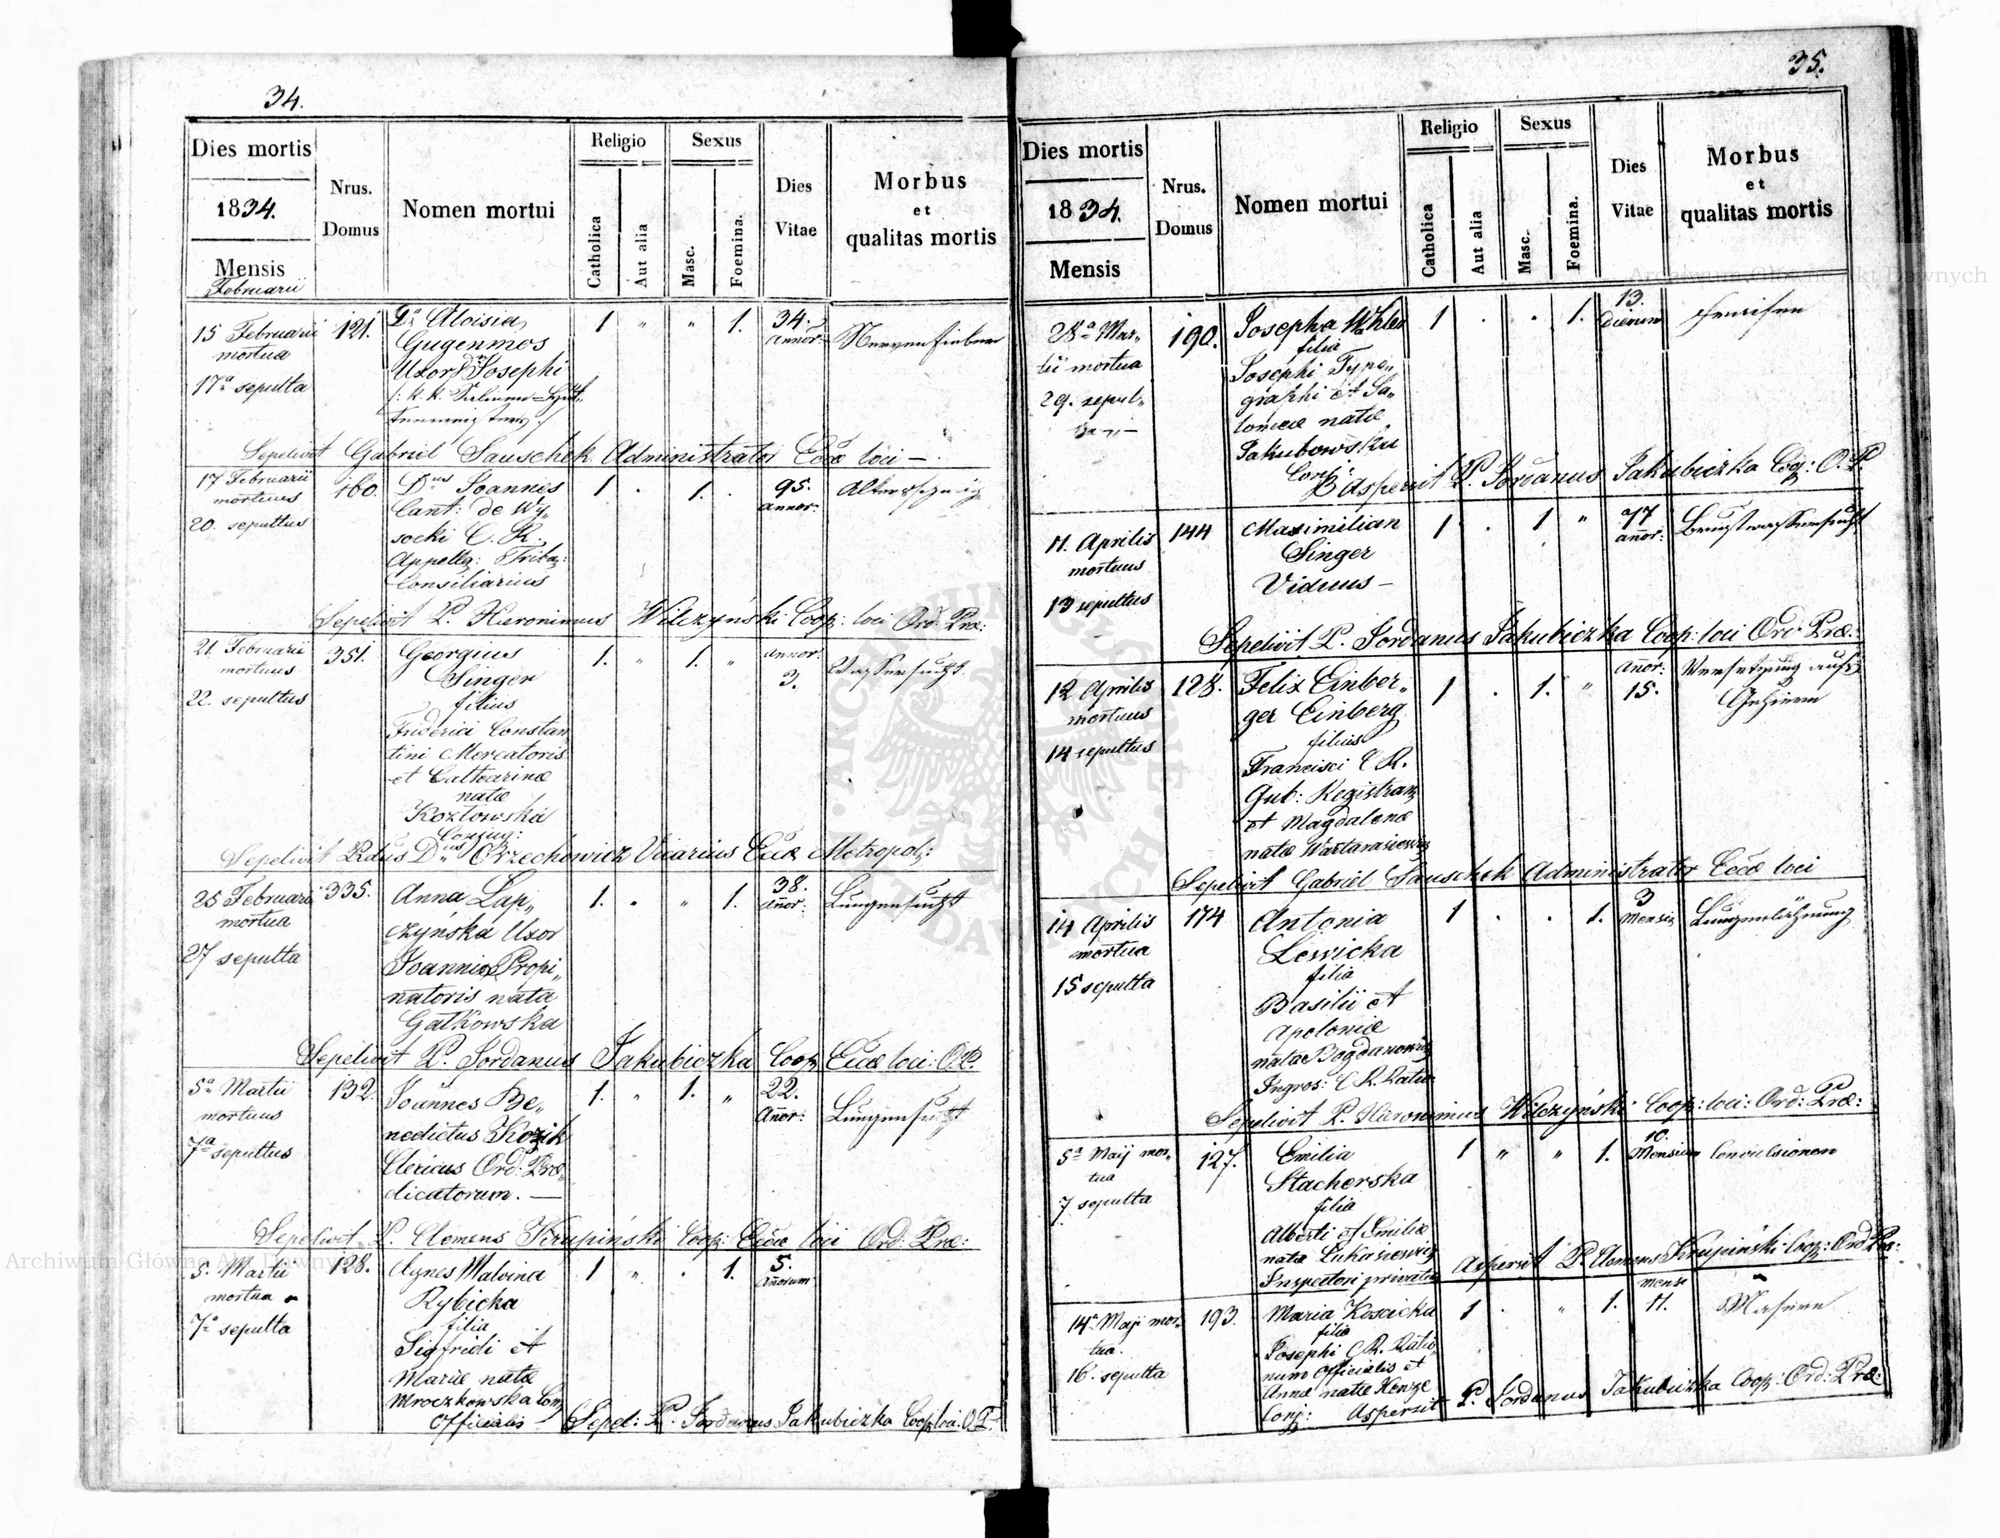 34.
Dies mortis
1834.
Mensis
Februarii
Nrus.
Domus
Nomen mortui
Religio
Catholica
Aut alia
Sexus
Masc.
Foemina.
Dies
Vitae
Morbus
et
qualitas mortis
15 Februarii
mortua
17a sepulta
121.
Da Aloisia
Gugenmos
Uxor Di Josephi
1 " " 1.
34.
annor:
Nervenfieber
Sepelivit Gabriel Sauschek Administrator Eccæ loci —.
17 Februarii
mortuus
20. sepultus
160.
Dnus Joannes
Cant: de Wy„
socki C. R.
Appella: Tribu:
Consiliarius
1 . 1. .
95.
annor:
Sepelivit P. Hieronimus Wilczyński Coop: loci Ord: Præ:
21. Februarii
mortuus
22. sepultus
351.
Georgius
Singer
filius
Friderici Constan
tini Mercatoris
et Catharinæ
natæ
Kozłowska
Conjug:
1. " 1. "
annor:
3.
Wassersucht
Sepelivit Rdus Dnus Orzechowicz Vicarius Eccæ Metropol:
25 Februarii
mortua
27 sepulta
335.
Anna Łap„
czyńska Uxor
Joannis Propi„
natoris nata
Gałkowska
1. " " 1.
38.
añor:
Lungensucht
Sepelivit P. Jordanus Jakubiczka Coop: Eccæ loci: O.P.
5a Martii
mortuus
7a sepultus
132.
Joannes Be„
nedictus Kozik
Clericus Ord: Præ„
dicatorum. —
1. " 1. "
22.
Añor:
Lungensucht
Sepelivit P. Clemens Krupiński Coop: Eccæ loci Ord: Præ:
5. Martii
mortua
7a sepulta
128.
Agnes Malvina
Rybicka
filia
Sigfridi et
Mariæ natæ
Mroczkowska Conj
Officialis
1 " . 1.
5.
Añorum
Sepel: P. Jordanus Jakubiczka Coop: loci O.P.
35.
Dies mortis
1834.
Mensis
Nrus.
Domus
Nomen mortui
Religio
Catholica
Aut alia
Sexus
Masc.
Foemina.
Dies
Vitae
Morbus
et
qualitas mortis
28a Mar„
tii mortua
29. sepul„
ta —
190.
Josepha
filia
Josephi Typo„
graphi et Sa„
lomeæ natæ
Jakubowska
Conj:
1 . . 1.
13.
dierum
Fraisen
Aspersit P. Jordanus Jakubiczka Coop: O.P.
11. Aprilis
mortuus
13 sepultus
144
Maximilian
Singer
Viduus —
1 . 1 "
77
añor:
Brustwassersucht
Sepelivit P. Jordanus Jakubiczka Coop: loci Ord: Præ:
12 Aprilis
mortuus
14 sepultus
128.
Felix Einber„
ger Einberg
filius
Francisci C. R.
Gub: Registran:
et Magdalenæ
natæ Wartarasiewicz
1 . 1. "
Anor:
15.
Versetzung aufs
Gehirn
Sepelivit Gabriel Sauschek Administrator Eccæ loci
14 Aprilis
mortua
15 sepulta
174
Antonia
Lewicka
filia
Basilii et
Apoloniæ
natæ Bogdanowicz
Ingros: C. R. Ratio:
1 . . 1.
3
Mensiu
Lungenlähmung
Sepelivit P. Hieronimus Wilczyński Coop: loci: Ord: Præ:
5a Maij mor„
tua
7 sepulta
127.
Emilia
Stacherska
filia
Alberti et Emiliæ
natæ Łukasiewicz
Inspectori privatæ
1 " " 1.
10.
Mensium
Convulsionen
Aspersit P. Clemens Krupiński Coop: Ord: Præ:
14a Maji mor„
tua.
16. sepulta
193.
Maria Koscicka
filia
Josephi C. R. Ratio„
num Officialis et
Annæ natæ Henze
Conj:
1 . " 1.
mens
11.
Masern
Aspersit P. Jordanus Jakubiczka Coop: Ord: Præ:
Archiwum Główne Akt Dawnych
Archiwum Główne Akt Dawnych
ARCHIWUM GŁÓWNE AKT DAWNYCH